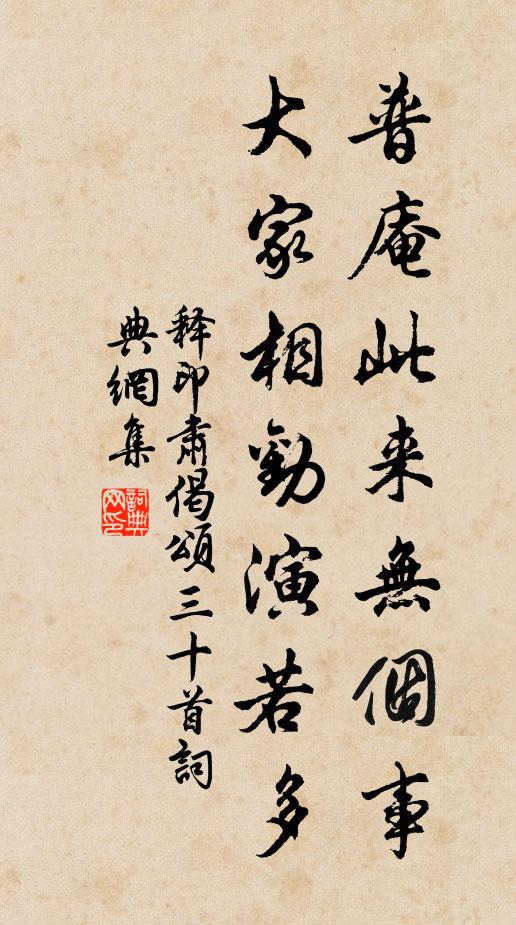 普庵此来無個事
大家相勸演若多
释印肅偈頌三十首詞
典網集
詞典網印